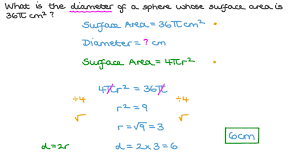 What is the diameter of a sphere whose surface area is
36π cm²?
Surface Area = 36π cm²
Diameter = ? cm
Surface Area = 4πr²
4πr² = 36π
÷4 ÷4
r² = 9
√ √
r = √9 = 3
d = 2r d = 2 × 3 = 6
6cm